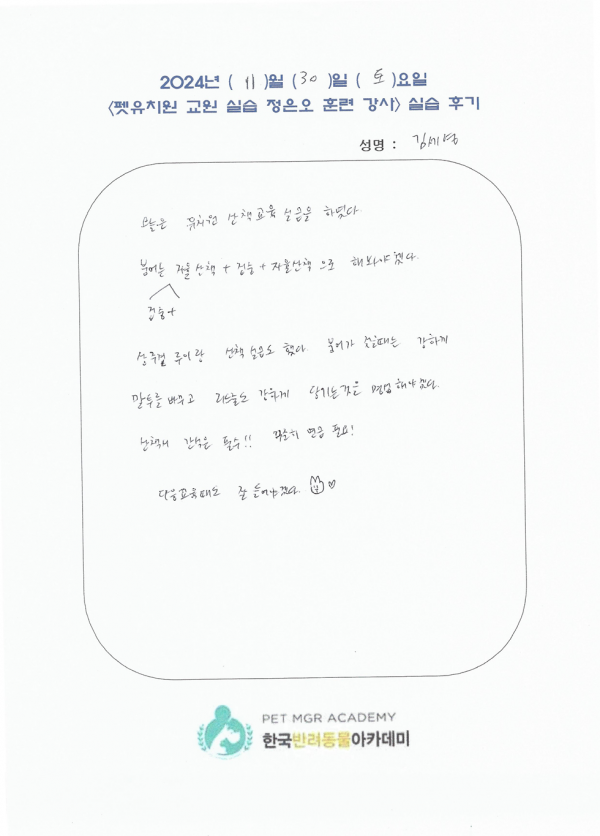 2024년 ( 11 )월 ( 30 )일 ( 토 )요일
<펫유치원 교원 실습 정은오 훈련 강사> 실습 후기
성명 : 김세영
오늘은 유치원 산책교육 실습을 하였다.
붐어는 자율산책 + 집중 + 자율산책 으로 해봐야겠다.
집중+
루이랑 산책실습도 했다. 붐어가 짖을때는 강하게
말투를 바꾸고 리드줄도 강하게 당기는것을 연습해야겠다.
산책시 간식은 필수!! 꾸준히 연습 필요!
다음교육때도 잘 들어야겠다. ♡
PET MGR ACADEMY
한국반려동물아카데미